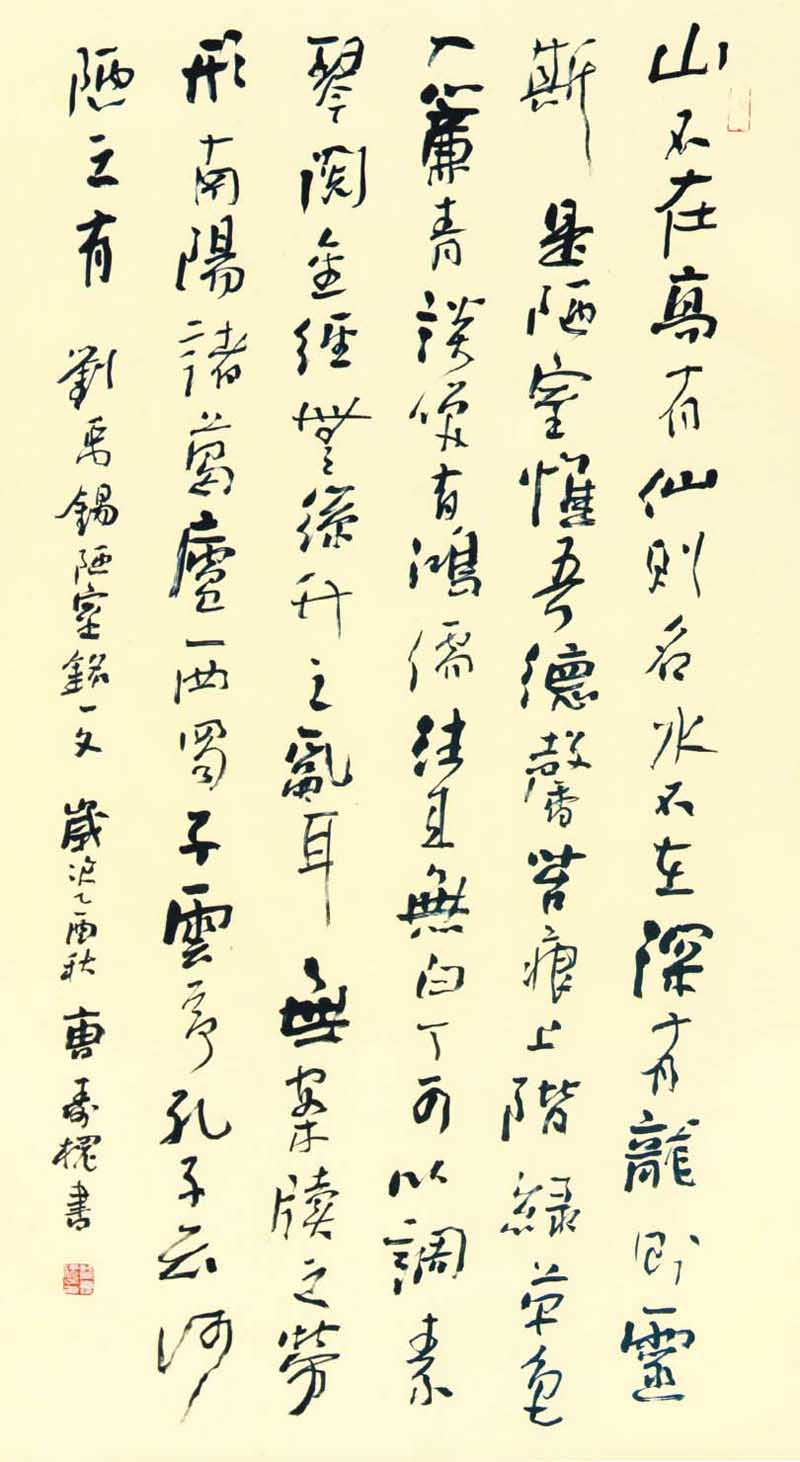 山不在高有仙則名水不在深有龍則靈
斯是陋室惟吾德馨苔痕上階緑草色
入簾青談笑有鴻儒往来無白丁可以調素
琴閱金經無絲竹之亂耳無案牘之勞
形南陽諸葛廬西蜀子雲亭孔子云何
陋之有 劉禹錫陋室銘一文 歲次乙酉秋 書